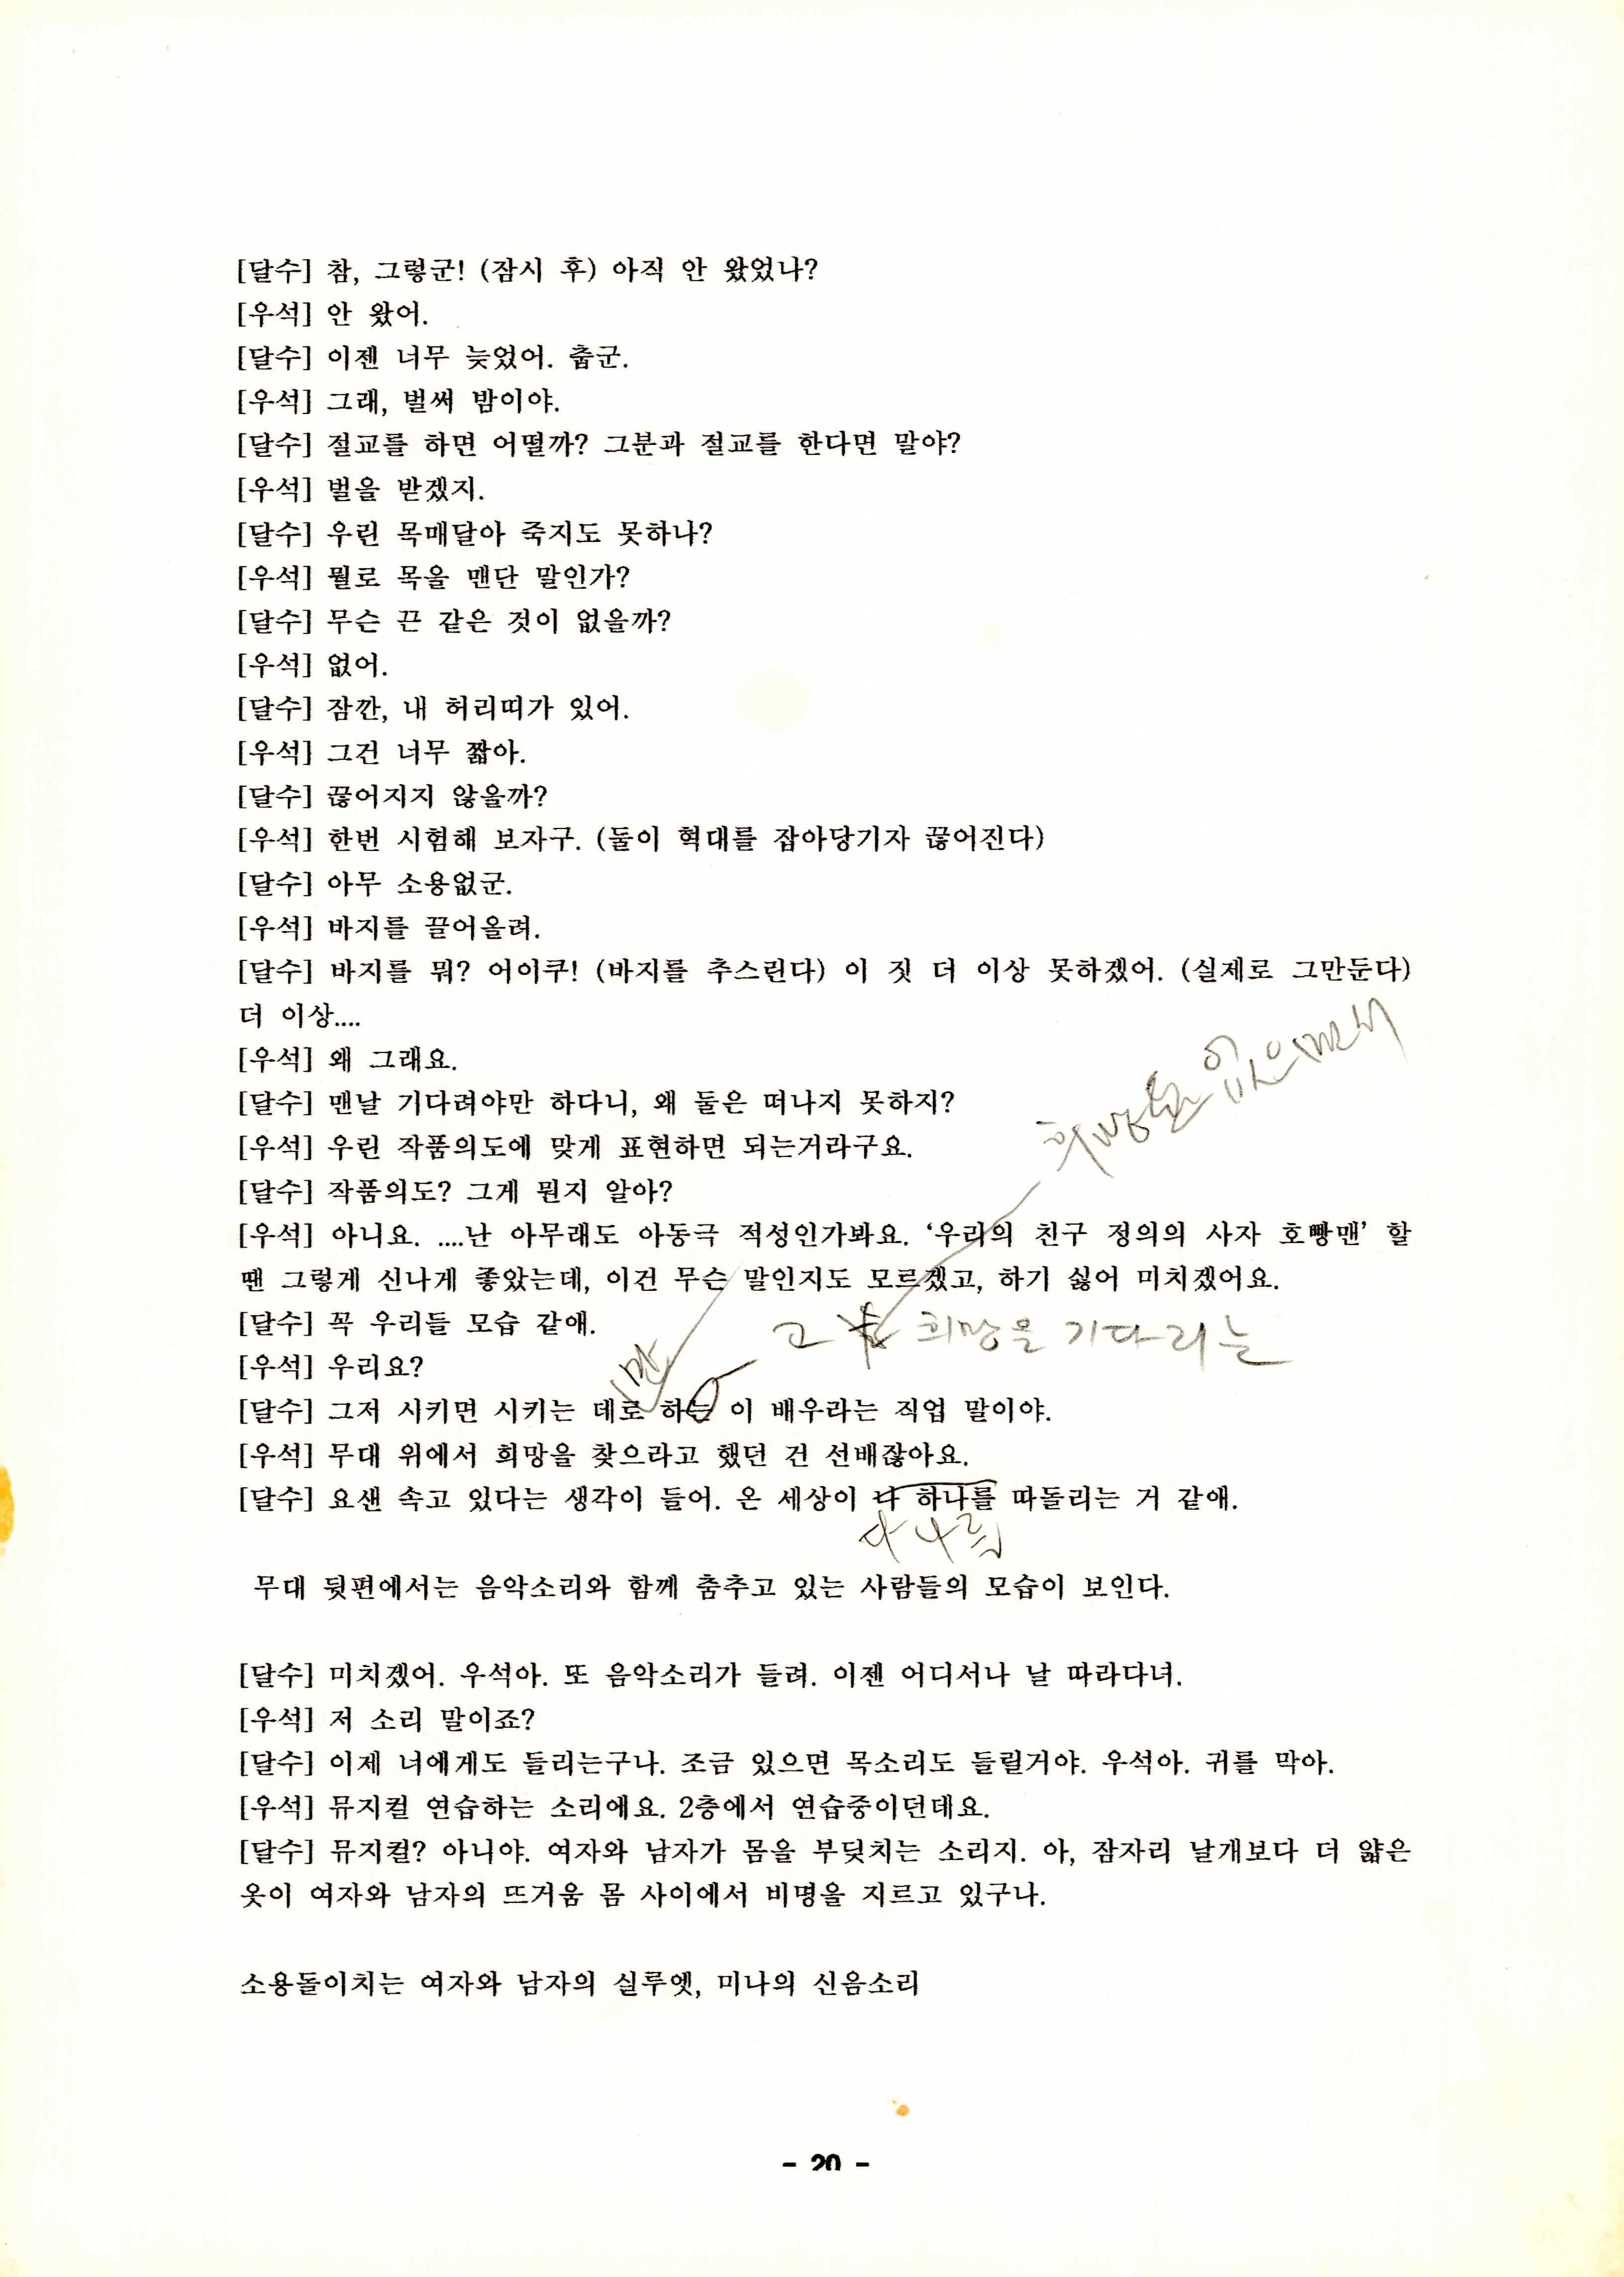 [달수] 참, 그렇군! (잠시 후) 아직 안 왔었나?
[우석] 안 왔어.
[달수] 이젠 너무 늦었어. 춥군.
[우석] 그래, 벌써 밤이야.
[달수] 절교를 하면 어떨까? 그분과 절교를 한다면 말야?
[우석] 벌을 받겠지.
[달수] 우린 목매달아 죽지도 못하나?
[우석] 뭘로 목을 맨단 말인가?
[달수] 무슨 끈 같은 것이 없을까?
[우석] 없어.
[달수] 잠깐, 내 허리띠가 있어.
[우석] 그건 너무 짧아.
[달수] 끊어지지 않을까?
[우석] 한번 시험해 보자구. (둘이 혁대를 잡아당기자 끊어진다)
[달수] 아무 소용없군.
[우석] 바지를 끌어올려.
[달수] 바지를 뭐? 어이쿠! (바지를 추스린다) 이 짓 더 이상 못하겠어. (실제로 그만둔다)
더 이상....
[우석] 왜 그래요.
[달수] 맨날 기다려야만 하다니, 왜 둘은 떠나지 못하지?
[우석] 우린 작품의도에 맞게 표현하면 되는거라구요.
희망은 없으면서
[달수] 작품의도? 그게 뭔지 알아?
[우석] 아니요. ....난 아무래도 아동극 적성인가봐요. ‘우리의 친구 정의의 사자 호빵맨’ 할
땐 그렇게 신나게 좋았는데, 이건 무슨 말인지도 모르겠고, 하기 싫어 미치겠어요.
[달수] 꼭 우리들 모습 같애.
고 희망을 기다리는
[우석] 우리요?
[달수] 그저 시키면 시키는 데로 하는 이 배우라는 직업 말이야.
[우석] 무대 위에서 희망을 찾으라고 했던 건 선배잖아요.
[달수] 요샌 속고 있다는 생각이 들어. 온 세상이 나 하나를 따돌리는 거 같애.
다 나를
무대 뒷편에서는 음악소리와 함께 춤추고 있는 사람들의 모습이 보인다.
[달수] 미치겠어. 우석아. 또 음악소리가 들려. 이젠 어디서나 날 따라다녀.
[우석] 저 소리 말이죠?
[달수] 이제 너에게도 들리는구나. 조금 있으면 목소리도 들릴거야. 우석아. 귀를 막아.
[우석] 뮤지컬 연습하는 소리에요. 2층에서 연습중이던데요.
[달수] 뮤지컬? 아니야. 여자와 남자가 몸을 부딪치는 소리지. 아, 잠자리 날개보다 더 얇은
옷이 여자와 남자의 뜨거움 몸 사이에서 비명을 지르고 있구나.
소용돌이치는 여자와 남자의 실루엣, 미나의 신음소리
- 20 -